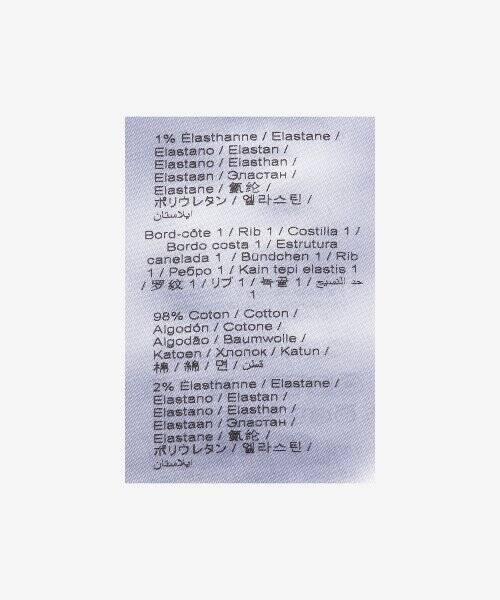 1% Élasthanne / Elastane /
Elastano / Elastan /
Elastano / Elasthan /
Elastaan / Эластан /
Elastane / 氨纶 /
ポリウレタン / 엘라스틴 /
ايلاستان
Bord-côte 1 / Rib 1 / Costilla 1 /
Bordo costa 1 / Estrutura
canelada 1 / Bündchen 1 / Rib
1 / Ребро 1 / Kain tepi elastis 1
/ 罗纹 1 / リブ 1 / 녹골 1 / حد النسيج
1
98% Coton / Cotton /
Algodón / Cotone /
Algodão / Baumwolle /
Katoen / Хлопок / Katun /
棉 / 綿 / 면 / قطن
2% Élasthanne / Elastane /
Elastano / Elastan /
Elastano / Elasthan /
Elastaan / Эластан /
Elastane / 氨纶 /
ポリウレタン / 엘라스틴 /
ايلاستان